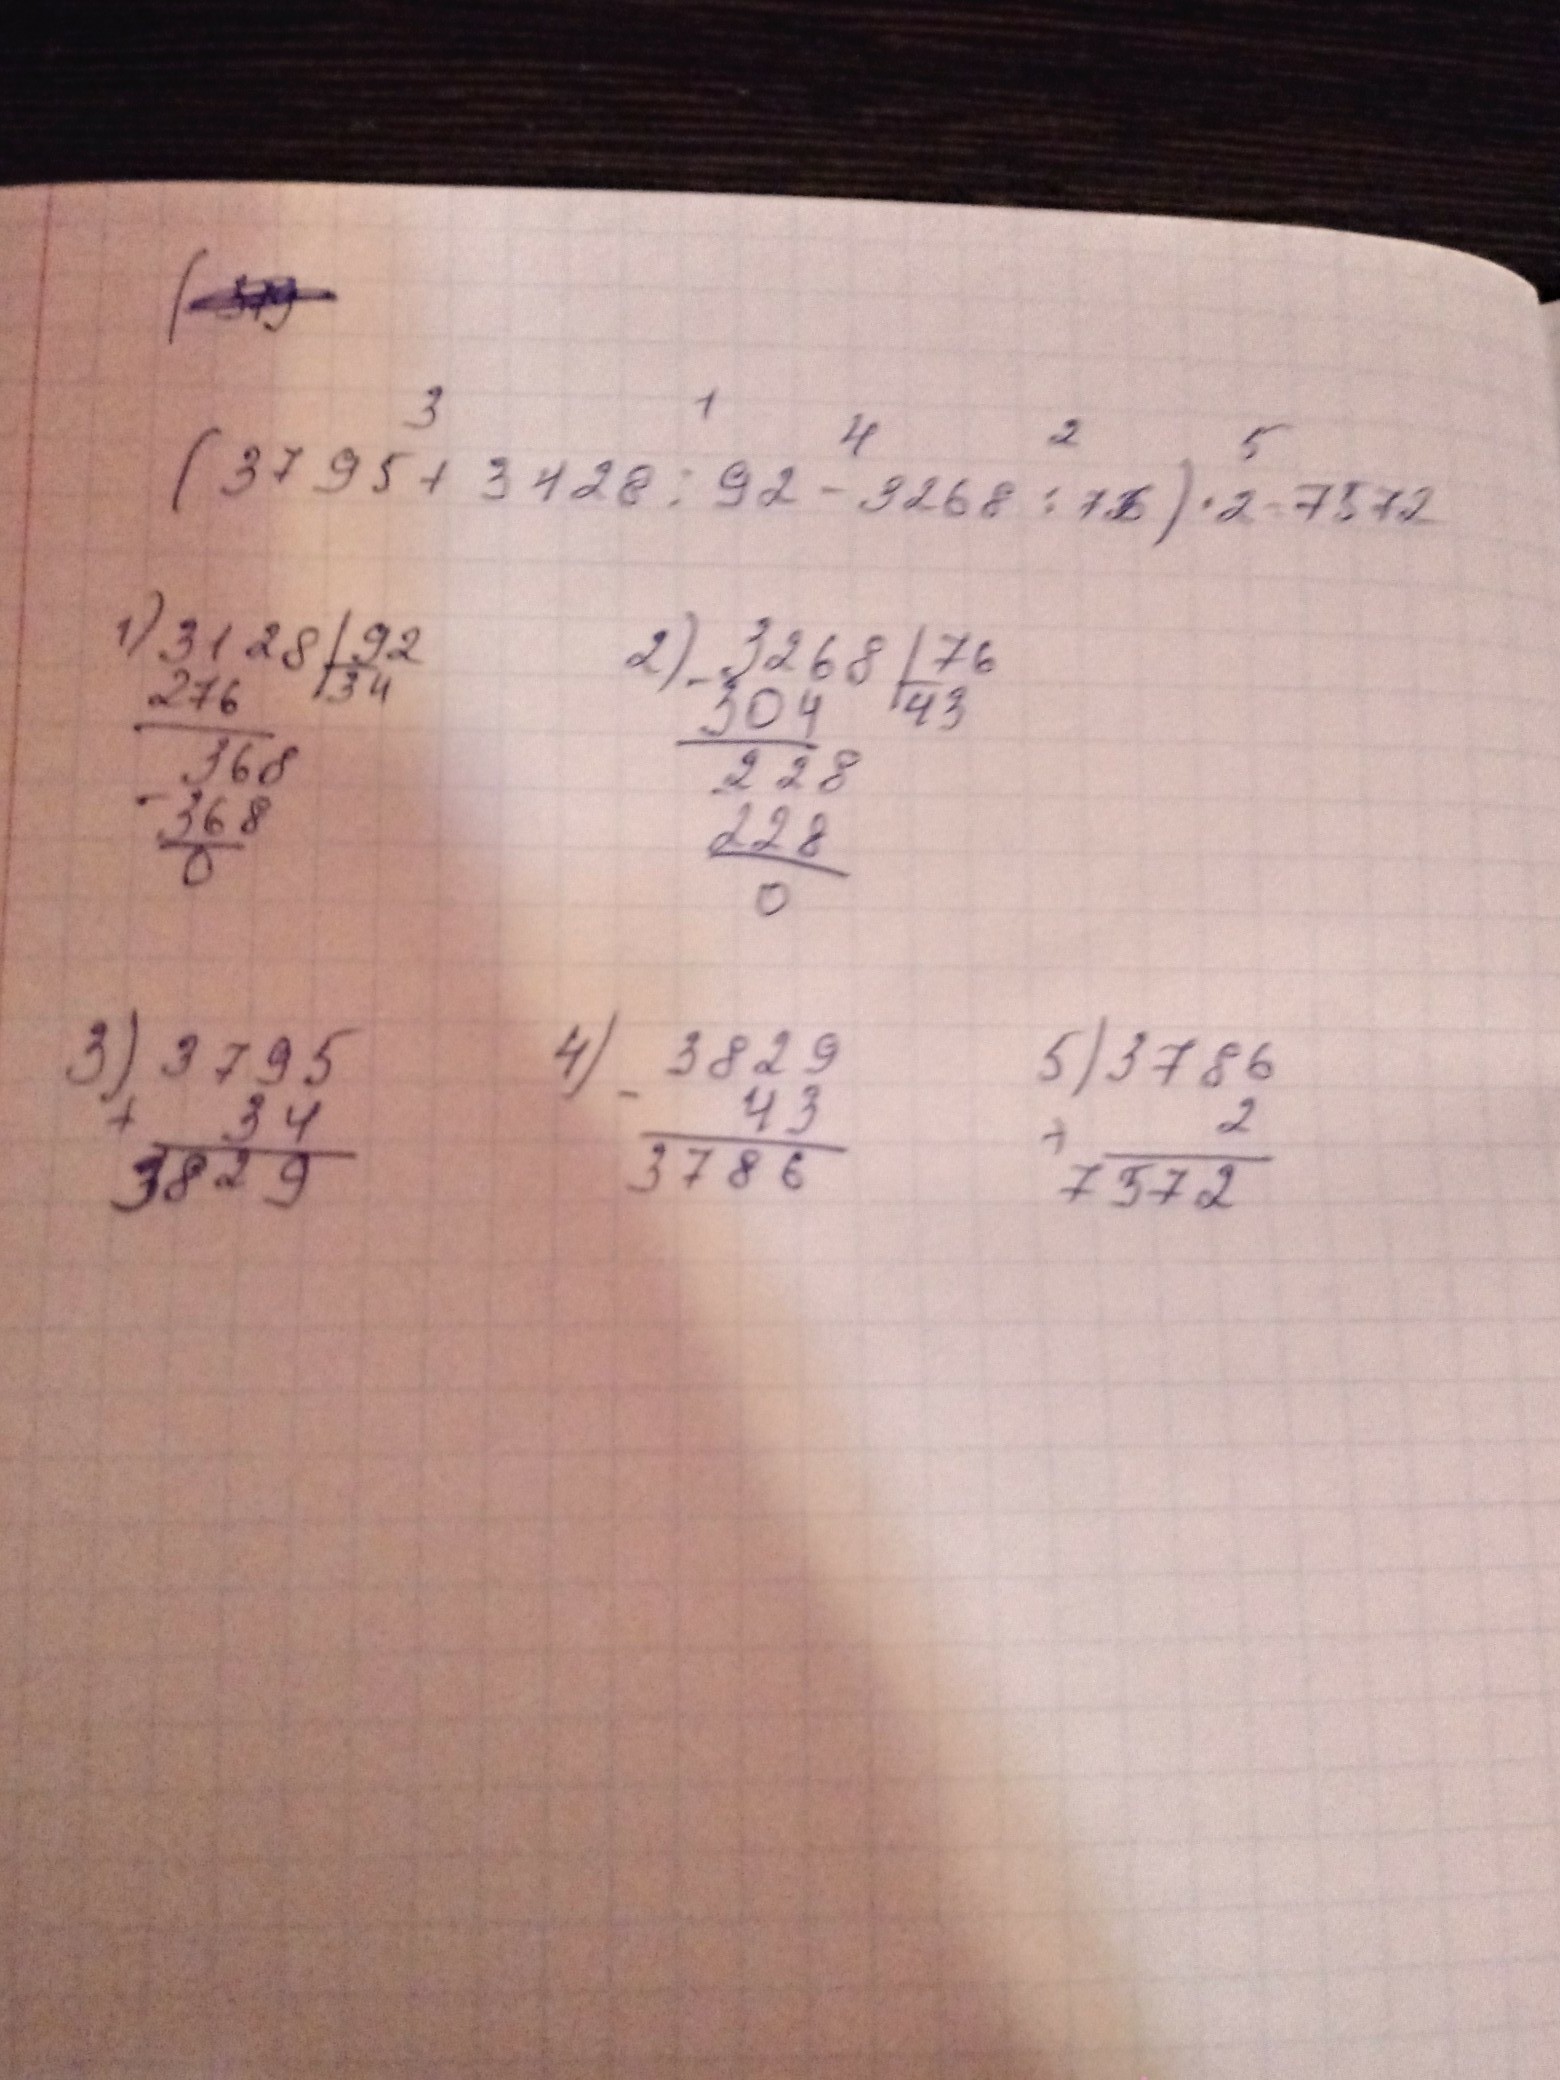 (3795+3128:92-3268:76)·2=7572
3 1 4 2 5
1) 3128 | 92
276 34
368
- 368
0
2) - 3268 | 76
304 43
228
228
0
3) 3795
+ 34
3829
4) - 3829
43
3786
5) 3786
× 2
7572